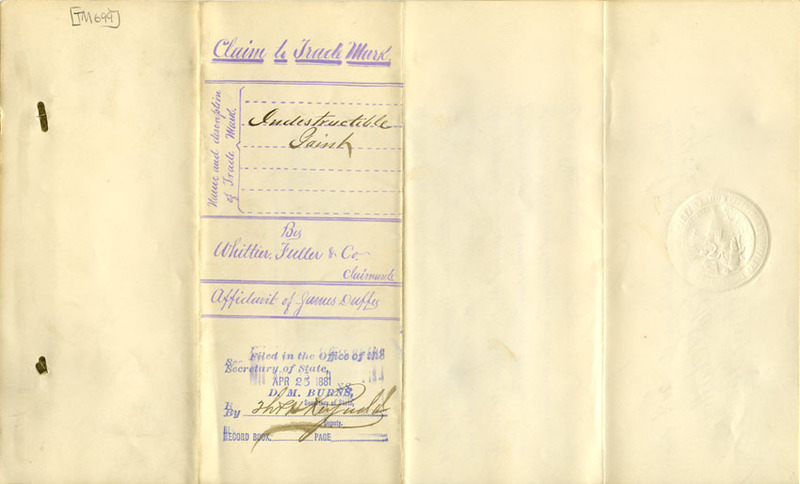 [TM699]
Claim to Trade Mark
Name and description
of Trade Mark.
Indestructible
Paint
By
Whittier, Fuller & Co.
Claimants
Affidavit of James Duffy
Filed in the Office of the
Secretary of State,
APR 23 1881
D. M. BURNS,
Secretary of State,
By
Deputy.
RECORD BOOK, PAGE